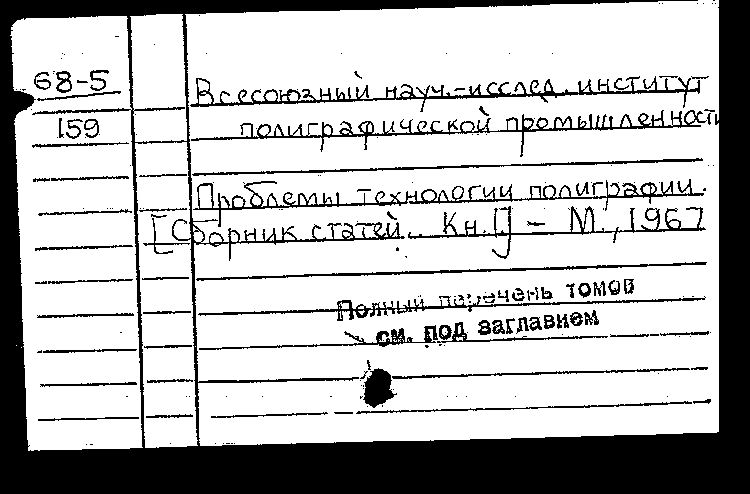 68-5
159
Всесоюзный науч.-исслед. институт
полиграфической промышленности
Проблемы технологии полиграфии.
[Сборник статей. Кн. ] – М., 1967
Полный перечень томов
см. под заглавием